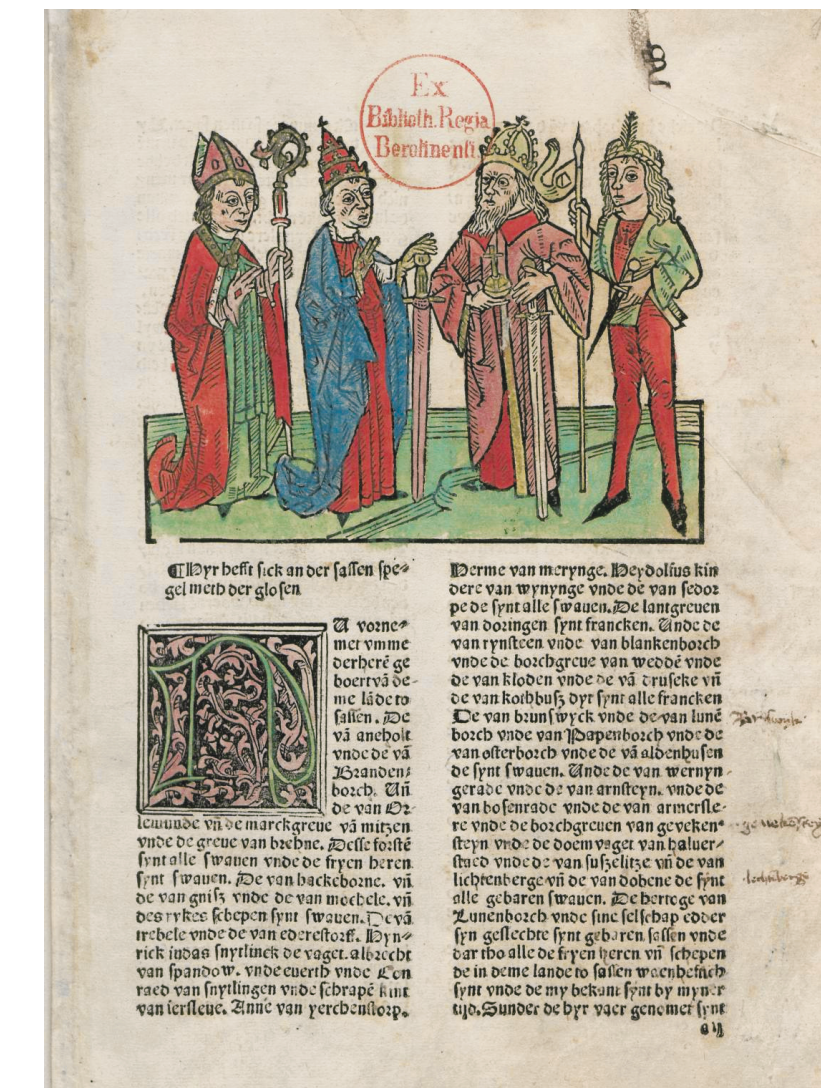 Ex
Biblioth. Regia
Berolinensi.
¶Hyr hefft sick an der sassen spe⸗
gel meth der glosen
U vorne⸗
met vmme
derherē ge
boert vā de⸗
me lāde to
sassen. De
vā aneholt
vnde de vā
Branden⸗
borch. Uñ
de van Or⸗
lemunde vñ de marckgreue vā mitzen
vnde de greue van brehne. Desse forstē
synt alle swauen vnde de fryen heren
synt swauen. De van hackeborne. vñ
de van gnisz vnde de van mochele. vñ
des rykes schepen synt swauen. De vā
trebele vnde de van ederestorff. Hyn⸗
rick iudas snytlinck de vaget. albrecht
van spandow. vnde euerth vnde Con
raed van snytlingen vnde schrapē kint
van iersleue. Anne van yerchenstorp.
Herme van merynge. Heydolfus kin
dere van wynynge vnde de van sedor
pe de synt alle swauen. De lantgreuen
van doringen synt francken. Unde de
van rynsteen vnde van blankenborch
vnde de borchgreue van weddē vnde
de van kloden vnde de vā cruseke vñ
de van kothbusz dyt synt alle francken
De van brunswyck vnde de van lunē
borch vnde van Papenborch vnde de
van osterborch vnde de vā aldenhusen
de synt swauen. Unde de van wernyn⸗
gerade vnde de van arnsteyn. vnde de
van bosenrade vnde de van armersle⸗
re vnde de borchgreuen van geveken⸗
steyn vnde de doem vaget van haluer⸗
staed vnde de van suszelitze vñ de van
lichtenberge vñ de van dobene de synt
alle gebaren swauen. De hertoge van
Lunenborch vnde sine selschap edder
syn geslechte synt gebaren sassen vnde
dar tho alle de fryen heren vñ schepen
de in deme lande to sassen waenhefftich
synt vnde de my bekant synt by myner
tijd. Sunder de hyr vaer genomet synt